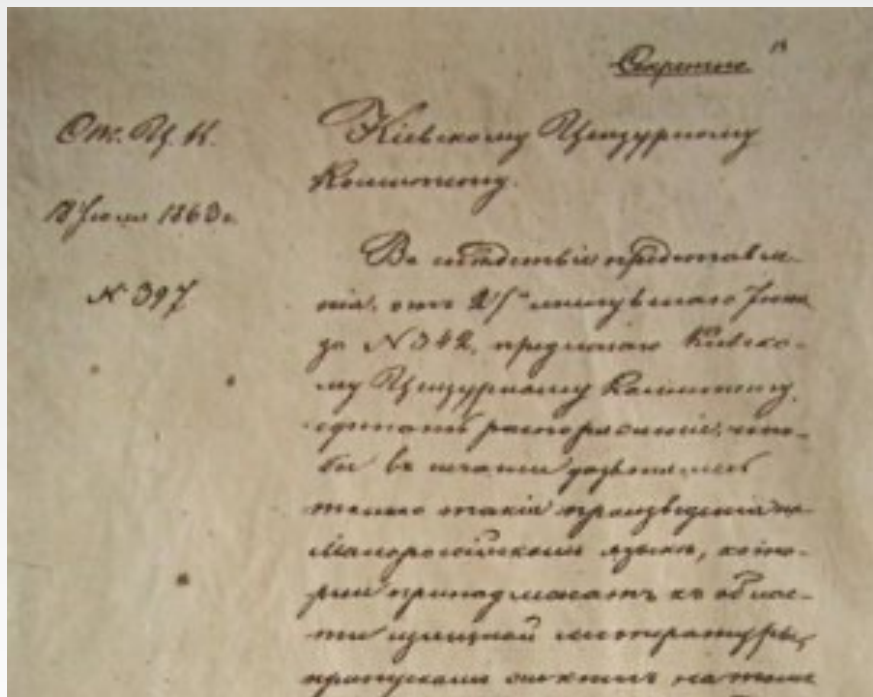 Секретно
От. Ц. К.
Кіевскому Цензурному
Комитету.
18 Іюля 1863 г.
N 397
Въ слѣдствіе представле-
нія, отъ 27го минувшаго Іюня
за N 342, предлагаю Кіевско-
му Цензурному Комитету
сдѣлать распоряженіе, что-
бы въ печати дозволялись
только такія произведенія на
Малороссійскомъ языкѣ, кото-
рыя принадлежатъ къ облас-
ти изящной литературы,